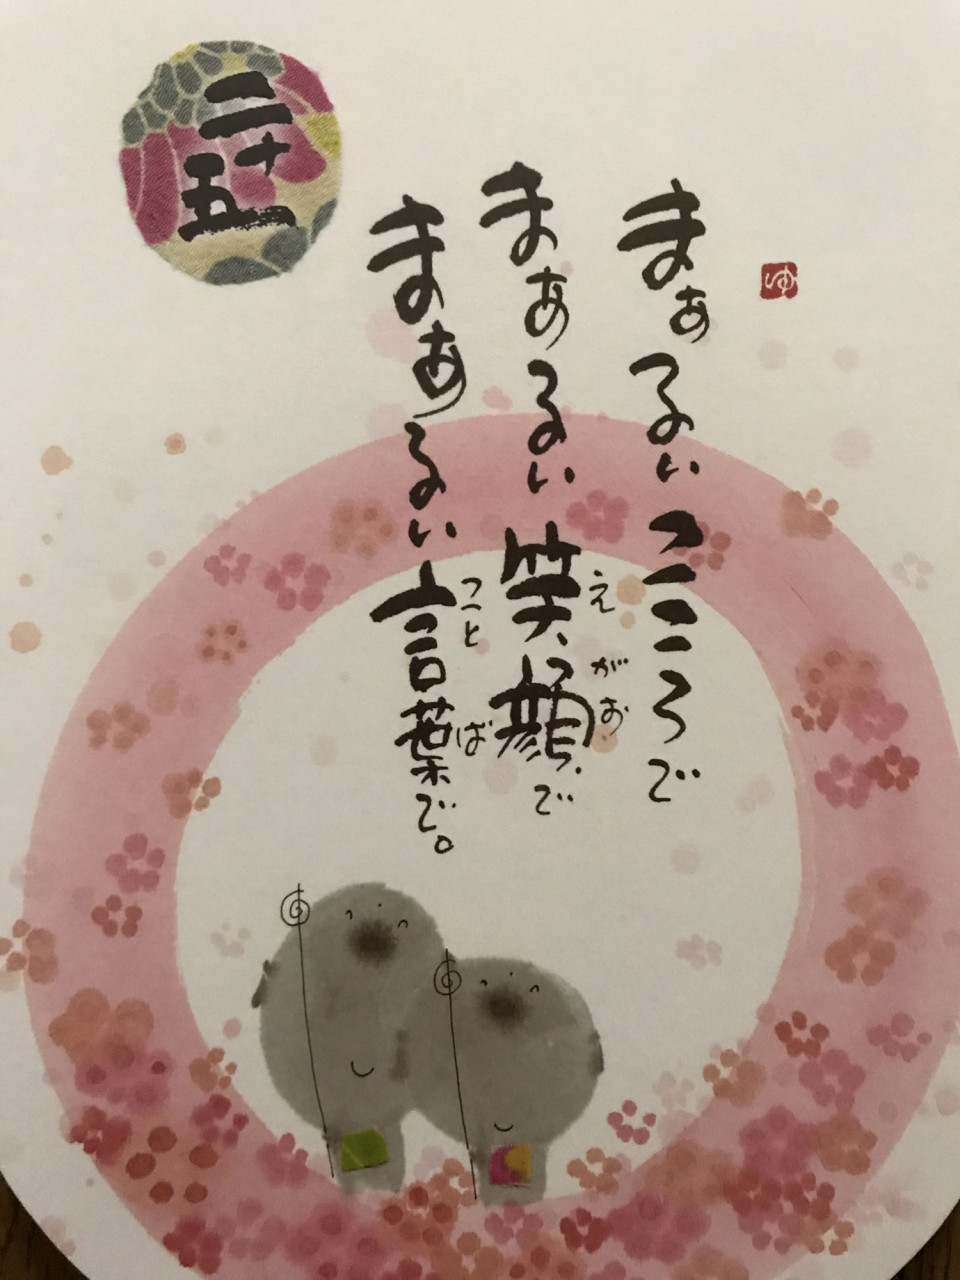 ゆ
まぁるいこころで
まぁるい笑顔で
えがお
まぁるい言葉で。
ことば
二十五